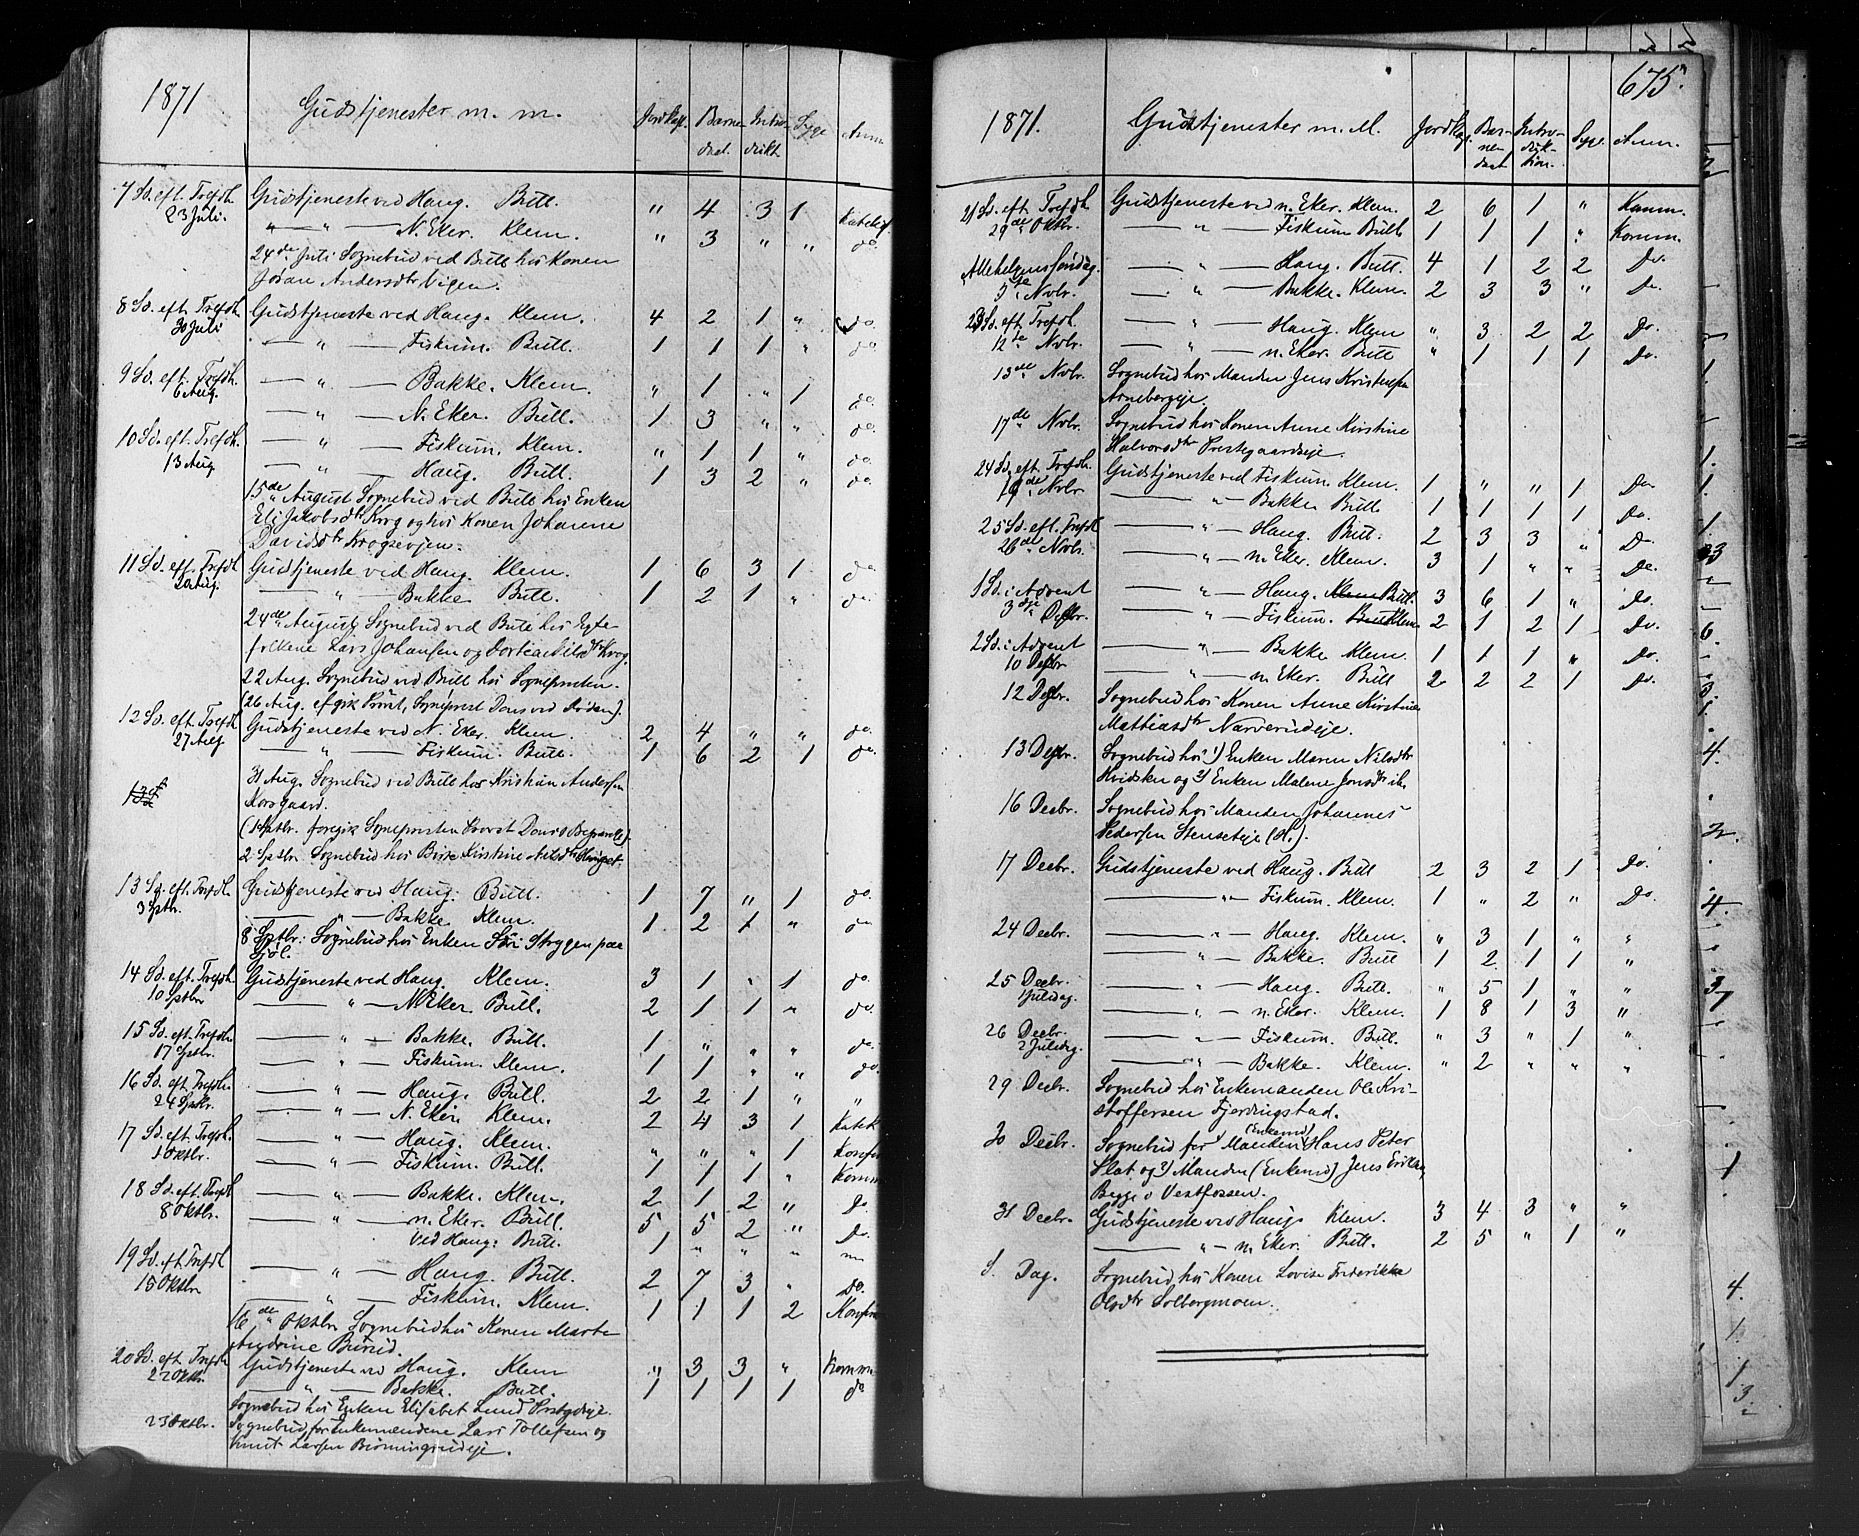 1871
Gudstjenester m. m.
Jordkast. Barne Intro Syge Anm
daab dukt
7 Sd. eft. Trefdh. Gudstjeneste ved Haug. Bull. " 4 3 1
23 Juli. " " — N. Eker. Klem. " 3 " " do.
24de Juli Sognebud ved Bull hos Konen
Johan Andersdtr Vigen.
8 Sd. eft. Trefdh. Gudstjeneste ved Haug. Klem. 4 2 1 " do.
30 Juli — " — Fiskum. Bull. 1 1 1 " do
9 Sd. eft. Trefdh. — " — Bakke. Klem. " 1 " 1 do.
6 Aug. — " — N. Eker. Bull. 1 3 " " do.
10 Sd. eft. Trefdh. — " — Fiskum. Klem. " 1 1 " do.
13 Aug — " — Haug. Bull. 1 3 2 " do.
15de August Sognebud ved Bull hos Enken
Eli Jakobsdtr Krog og hos Konen Johanne
Davidsdtr Krogsevjen.
11 Sd. eft. Trefdh Gudstjeneste ved Haug. Klem. 1 6 3 1 do
20 Aug. — " — Bakke Bull. 1 2 1 " do.
24de August Sognebud ved Bull hos Egte
folkene Lars Johansen og Krog.
22 Aug. Sognebud ved Bull hos Sogneprosten.
(26 Aug. afgik Provst, Sogneprest Dons ved Døden).
12 Sd. eft. Trefdh Gudstjeneste ved N. Eker. Klem. 2 4 " " do.
27 Aug. — " — Fiskum. Bull. 1 6 2 1 do
31 Aug. Sognebud ved Bull hos Kristian Andersen
Korsgaard.
(1 Sptbr. foregik Sogneprosten Provst Dons's Begravelse).
2 Sptbr. Sognebud hos Kirstine Nilsdtr
13 Sd. eft. Trefdh. Gudstjeneste ved Haug. Bull. 1 7 " 1 do.
3 Sptbr. — " — Bakke Klem. 1 2 1 " do
8 Sptbr. Sognebud hos Enken Siri Stryggen paa
14 Sd. eft. Trefdh Gudstjeneste ved Haug. Klem. 3 1 " 1 do.
10 Sptbr — " — N. Eker. Bull. 2 1 1 " do.
15 Sd. eft. Trefdh. — " — Bakke. Bull. 1 " " " do.
17 Sptbr. — " — Fiskum. Klem. 1 1 " " do.
16 Sd. eft. Trefdh. — " — Haug. Bull. 2 2 1 " "
24 Sptbr. — " — N. Eker. Klem. 2 4 3 1 Katek
17 Sd. eft. Trefdh. — " — Haug. Klem. " " " 1
1 Oktbr. — " — Fiskum. Bull. 1 1 1 " Komm
18 Sd. eft. Trefdh — " — Bakke. Klem. 2 1 2 " Do
8 Oktbr. — " — n. Eker. Bull. 5 5 2 " Do.
Ved Haug. Bull. 1 " " "
19 Sd. eft. Trefdh — " — Haug. Bull. 2 7 3 " Do.
15 Oktbr — " — Fiskum. Klem. 1 1 1 2
16de Oktbr Sognebud hos Konen Marte
Andrine Burud.
20 Sd. eft. Trefdh Gudstjeneste ved Haug. Klem " 3 3 " Komm
22 Oktbr. — " — Bakke. Bull. 1 1 1 1 do
Sognebud hos Enken Elisabet Lund
23 Oktbr. Sognebud for Enkemændene Lars Tollefsen og
Knut Larsen
675.
1871. Gudstjenester m. M. Jordkast. Bar- Intro- Syge. Anm.
ne- duk-
daab tion.
21 Sd. eft. Trefdh Gudstjeneste ved n. Eker. Klem. 2 6 1 " Komm.
29de Oktbr. — " — Fiskum Bull 1 1 1 " Komm.
Allehelgens Søndag. — " — Haug. Bull. 4 1 2 2 Do.
5te Novbr. — " — Bakke. Klem. 2 3 3 " Do.
23 Sd. eft. Trefdh. — " — Haug. Klem " 3 2 2 Do.
12te Novbr. — " — n. Eker. Bull " 1 1 1 Do.
13de Novbr. Sognebud hos Manden Jens Kristensen
Arnebergeje.
17de Novbr. Sognebud hos Konen Anne Kirstine
Halvorsdtr Prestgaardseje.
24 Sd. eft. Trefdh. Gudstjeneste ved Fiskum. Klem. 1 " " 1 Do.
19de Novbr — " — Bakke Bull 1 1 1 1 Do.
25 Sd. eft. Trefdh — " — Haug. Bull. 2 3 3 " Do
26de Novbr. — " — n. Eker. Klem. 3 1 " " Do.
1 Sd. i Advent — " — Haug. Klem Bull. 3 6 1 " Do.
3dje Decbr. — " — Fiskum. Bull Klem 2 1 2 1 Do.
2 Sd. i Advent — " — Bakke Klem. 1 1 1 " Do.
10 Decbr — " — n. Eker. Bull 2 2 2 1 Do.
12 Decbr. Sognebud hos Konen Anne Kirstine
Mattiasdtr Narverudeje.
13 Decbr. Sognebud hos 1) Enken Maren Nilsdtr
Hvidsten og 2) Enken Malene Jonsdtr ib.
16 Decbr. Sognebud hos Manden Johannes
Pedersen Stenseteje (H.).
17 Decbr. Gudstjeneste ved Haug. Bull 2 3 2 1 Do.
— " — Fiskum. Klem. 1 " 2 " Do.
24 Decbr. — " — Haug. Klem. " 3 1 " "
— " — Bakke. Bull 1 2 1 1 "
25 Decbr. — " — Haug. Bull. " 5 1 " "
1 Juledag. — " — n. Eker. Klem. 1 8 1 3 "
26 Decbr. — " — Fiskum. Bull. " 3 " 1 "
2 Juledag. — " — Bakke. Klem. " 2 " " "
29 Decbr. Sognebud hos Enkemanden Ole Kri-
stoffersen Fjerdingstad.
30 Decbr. Sognebud for Manden (Enkemd) Hans Peter
Slat. og 2) Manden (Enkemd) Jens Eriksen
Bygge i Vestfossen.
31 Decbr. Gudstjeneste ved Haug. Klem. 3 4 3 " "
— " — n. Eker. Bull. 2 5 " 1 "
S. Dag. Sognebud hos Konen Lovise Frederikke
Olsdtr Solbergmoen.